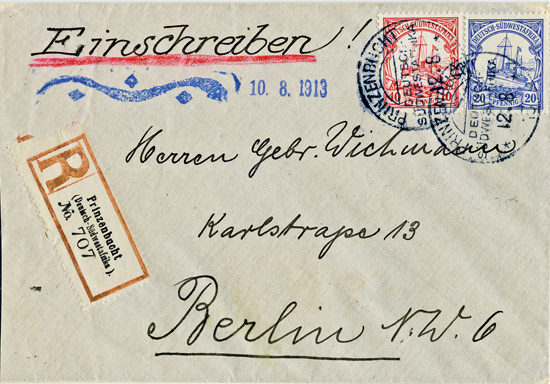 Einschreiben!
10. 8. 1913
DEUTSCH-SÜDWESTAFRIKA
10 PFENNIG
DEUTSCH-SÜDWESTAFRIKA
20 PFENNIG 20
PRINZENBUCHT
DEUTSCH-
SÜDWESTAFRIKA
12. 8.
R
Prinzenbucht
(Deutsch-Südwestafrika).
No. 707
Herren Gebr. Wichmann
Karlstraße 13
Berlin N.W. 6